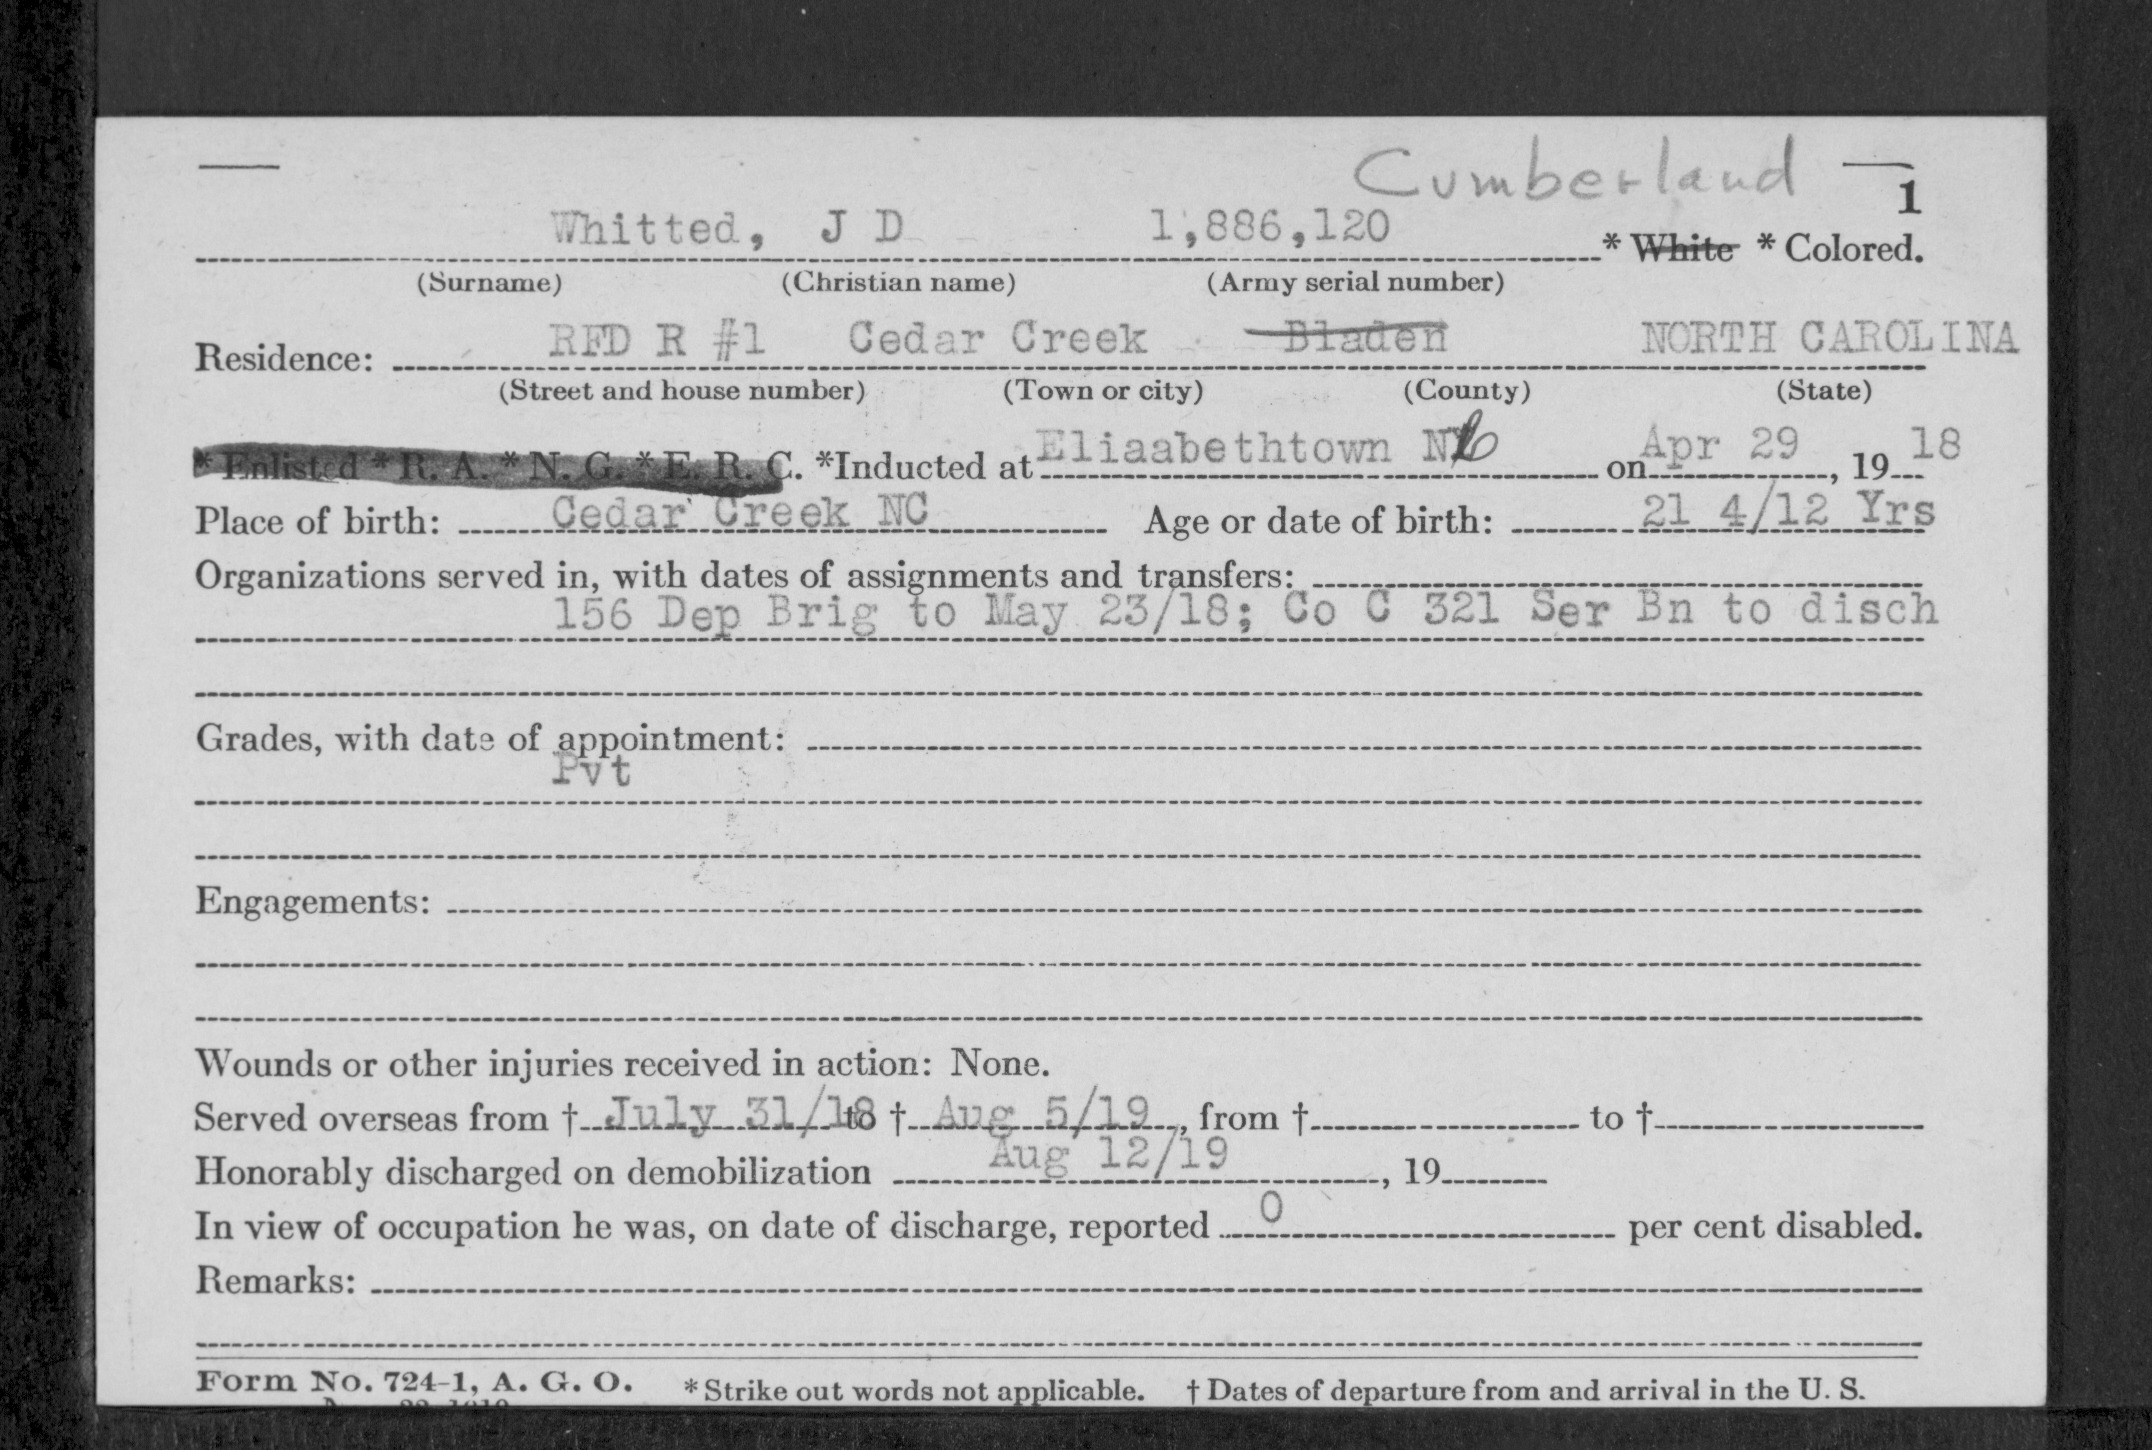 Cumberland
1
Whitted, J D 1,886,120 * White * Colored.
(Surname) (Christian name) (Army serial number)
RFD R #1 Cedar Creek Bladen NORTH CAROLINA
Residence:
(Street and house number) (Town or city) (County) (State)
* Enlisted * R. A. * N. G. * E. R. C. *Inducted at Eliaabethtown NC on Apr 29, 19 18
Place of birth: Cedar Creek NC Age or date of birth: 21 4/12 Yrs
Organizations served in, with dates of assignments and transfers:
156 Dep Brig to May 23/18; Co C 321 Ser Bn to disch
Grades, with date of appointment:
Pvt
Engagements:
Wounds or other injuries received in action: None.
Served overseas from † July 31/18 to † Aug 5/19, from † to †
Honorably discharged on demobilization Aug 12/19, 19
In view of occupation he was, on date of discharge, reported 0 per cent disabled.
Remarks:
Form No. 724-1, A. G. O. * Strike out words not applicable. † Dates of departure from and arrival in the U. S.